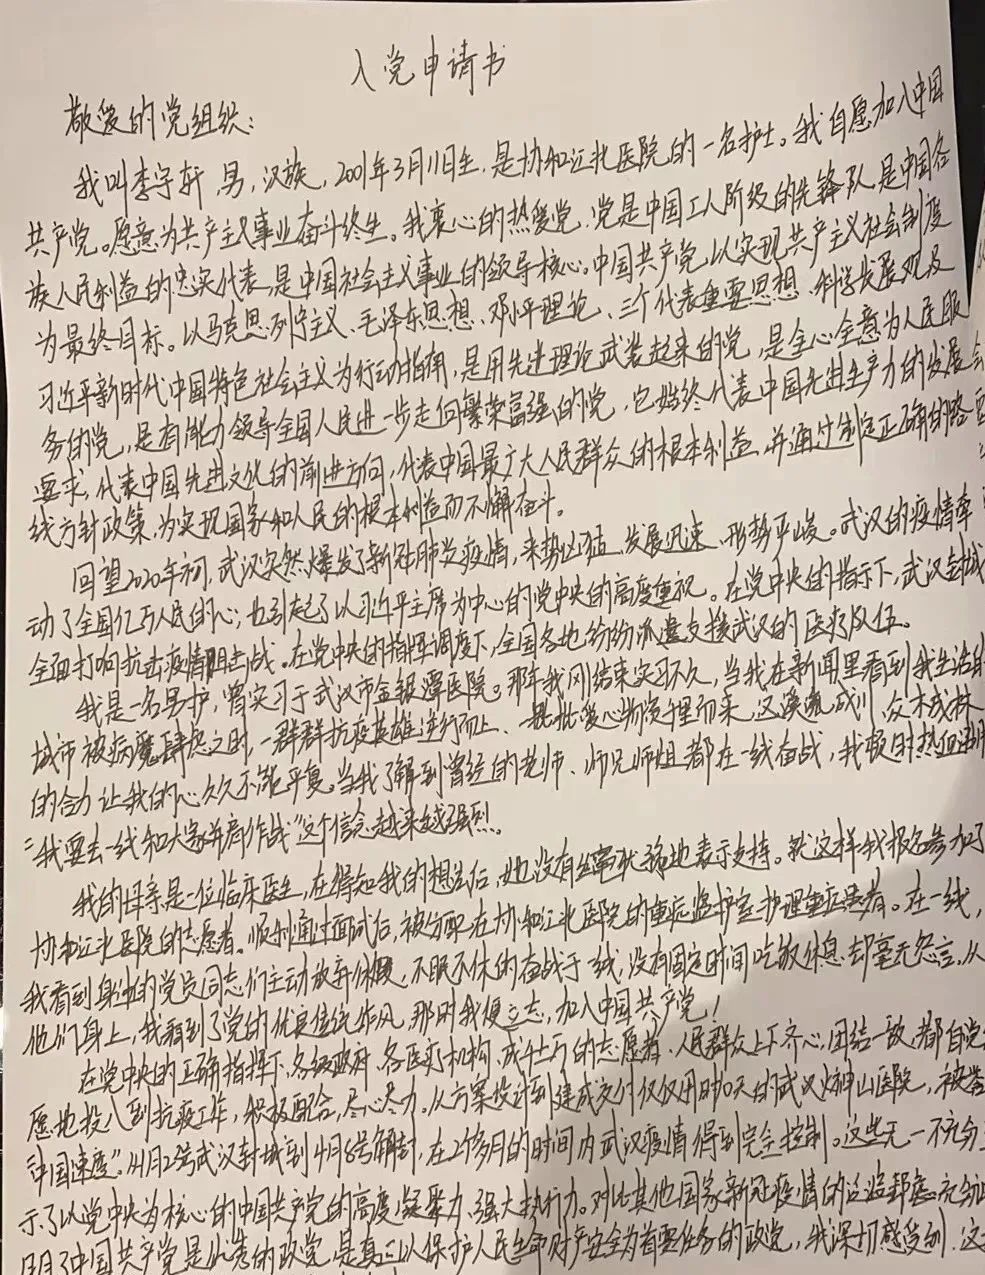 入党申请书
敬爱的党组织:
我叫李宇轩 男,汉族,2001年3月11日生.是协和江北医院的一名护士。我自愿加入中国
共产党。愿意为共产主义事业奋斗终生。我衷心的热爱党.党是中国工人阶级的先锋队.是中国各
族人民利益的忠实代表.是中国社会主义事业的领导核心。中国共产党以实现共产主义社会制度
为最终目标。以马克思列宁主义、毛泽东思想、邓小平理论、三个代表重要思想、科学发展观及
习近平新时代中国特色社会主义为行动指南,是用先进理论武装起来的党,是全心全意为人民服
务的党,是有能力领导全国人民进一步走向繁荣富强的党,它始终代表中国先进生产力的发展
要求,代表中国先进文化的前进方向,代表中国最广大人民群众的根本利益,并通过制定正确的路
线方针政策,为实现国家和人民的根本利益而不懈奋斗。
回望2020年初,武汉突然爆发了新冠肺炎疫情,来势凶猛、发展迅速、形势严峻。武汉的疫情牵
动了全国亿万人民的心,也引起了以习近平主席为中心的党中央的高度重视。在党中央的指示下,武汉全城
全面打响抗击疫情阻击战。在党中央的指挥调度下,全国各地纷纷派遣支援武汉的医疗队伍。
我是一名男护,曾实习于武汉市金银潭医院。那年我刚结束实习不久,当我在新闻里看到我生活的
城市被病魔肆虐之时,一群群抗疫英雄逆行而上、一批批爱心物资千里而来,汉溪流成川,众木成林
的合力让我的心久久不能平复。当我了解到曾经的老师、师兄师姐都在一线奋战,我顿时热血沸腾
"我要去一线和大家并肩作战"这个信念越来越强烈。
我的母亲是一位临床医生,在得知我的想法后,她没有丝毫犹豫地表示支持。就这样我报名参加了
协和江北医院的志愿者。顺利通过面试后,被分配在协和江北医院的重症监护室护理重症患者。在一线,
我看到身边的党员同志们主动放弃休假,不眠不休的奋战于一线,没有固定时间吃饭休息却毫无怨言。从
他们身上,我看到了党的优良传统作风,那时我便立志,加入中国共产党!
在党中央的正确指挥下,各级政府、各医疗机构、成千上万的志愿者、人民群众上下齐心,团结一致,都自觉
愿地投入到抗疫工作,积极配合,尽心尽力。从方案设计到建成交付仅仅用时10天的武汉火神山医院,被誉
"中国速度"。从1月23号武汉封城到4月8号解封,在2个多月的时间内武汉疫情得到完全控制。这些无一不充分
示了以党中央为核心的中国共产党的高度凝聚力、强大执行力。对比其他国家新冠疫情的
明了中国共产党是优秀的政党,是真正以保护人民生命财产安全为首要任务的政党,我深切感受到,这